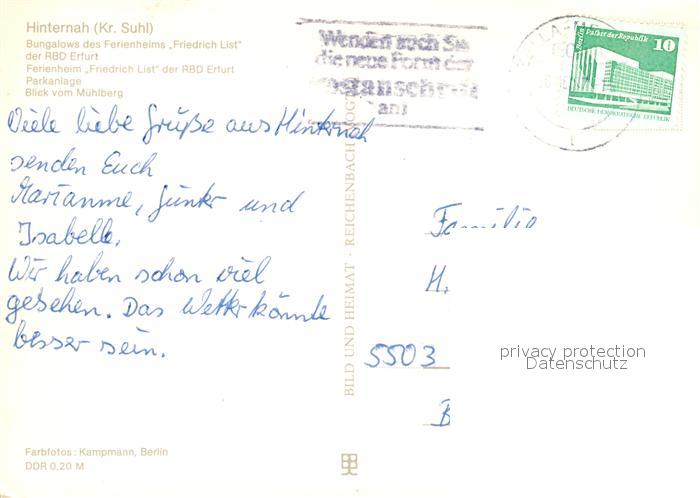 Hinternah (Kr. Suhl)
Bungalows des Ferienheims „Friedrich List"
der RBD Erfurt
Ferienheim „Friedrich List" der RBD Erfurt
Parkanlage
Blick vom Mühlberg
Wenden auch Sie
die neue Form der
an!
Berlin Palast der Republik 10
DEUTSCHE DEMOKRATISCHE REPUBLIK
Viele liebe Grüße aus Hinternah
senden Euch
Marianne, Günter und
Isabelle.
Wir haben schon viel
gesehen. Das Wetter könnte
besser sein.
BILD UND HEIMAT · REICHENBACH
Familie
H.
5503
B
privacy protection
Datenschutz
Farbfotos: Kampmann, Berlin
DDR 0,20 M